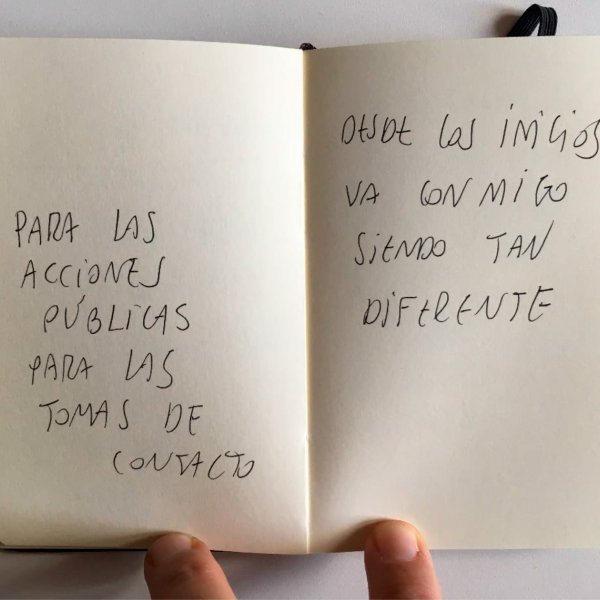 PARA LAS
ACCIONES
PÚBLICAS
PARA LAS
TOMAS DE
CONTACTO
DESDE LOS INICIOS
VA CONMIGO
SIENDO TAN
DIFERENTE